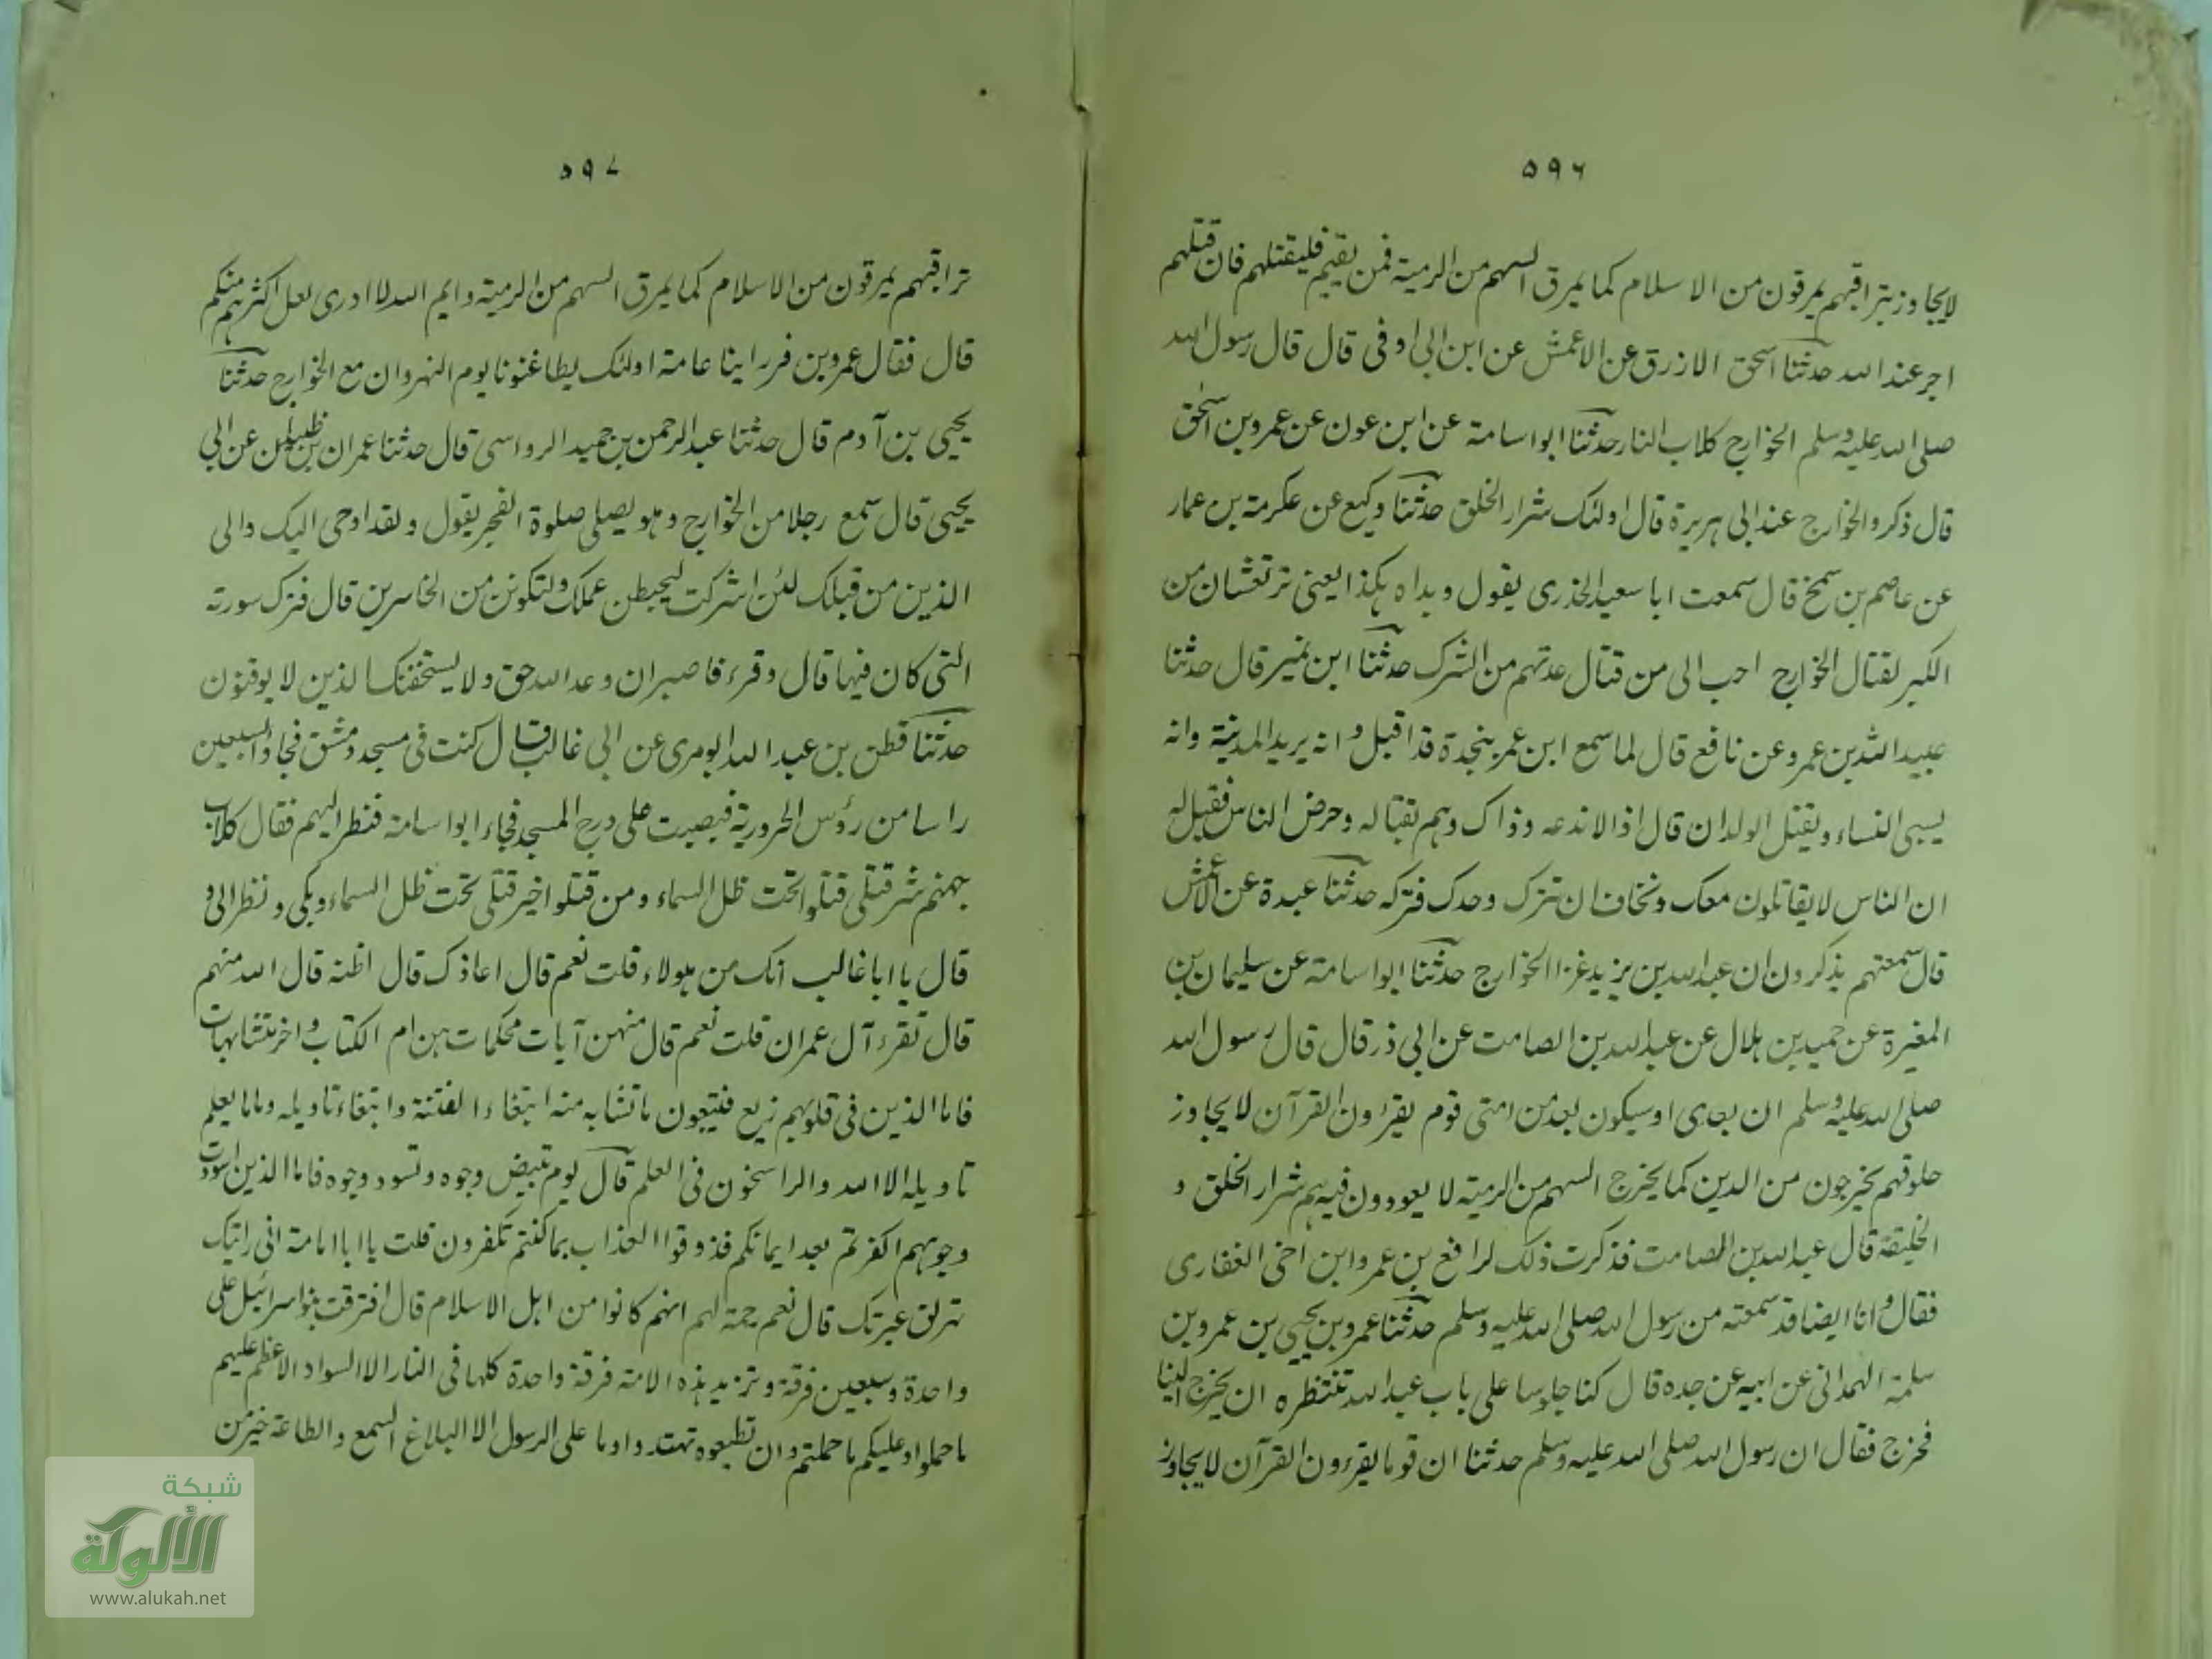 ٥٩٦
لايجاوز تراقيهم يمرقون من الاسلام كما يمرق السهم من الرمية فمن لقيهم فليقتلهم فان قتلهم
اجر عند الله حدثنا اسحق الازرق عن الاعمش عن ابن ابى اوفى قال قال رسول الله
صلى الله عليه وسلم الخوارج كلاب النار حدثنا ابو اسامة عن ابن عون عن عمرو بن اسحٰق
قال ذكروا الخوارج عند ابى هريرة قال اولئك شرار الخلق حدثنا وكيع عن عكرمة بن عمار
عن عاصم بن شمخ قال سمعت ابا سعيد الخدرى يقول ويداه هكذا يعنى ترتعشان من
الكبر لقتال الخوارج احب الى من قتال عدتهم من الشرك حدثنا ابن نمير قال حدثنا
عبيد الله بن عمرو عن نافع قال لما سمع ابن عمر بنجدة قد اقبل وانه يريد المدينة وانه
يسبى النساء ويقتل الولدان قال اذا لاندعه وذاك وهم بقتاله وحرض الناس فقيل له
ان الناس لايقاتلون معك ونخاف ان تترك وحدك فتركه حدثنا عبدة عن الاعمش
قال سمعتهم يذكرون ان عبد الله بن يزيد غزا الخوارج حدثنا ابو اسامة عن سليمان بن
المغيرة عن حميد بن هلال عن عبد الله بن الصامت عن ابى ذر قال قال رسول الله
صلى الله عليه وسلم ان بعدى او سيكون بعد من امتى قوم يقرؤن القرآن لايجاوز
حلوقهم يخرجون من الدين كما يخرج السهم من الرمية لا يعودون فيه هم شرار الخلق و
الخليقة قال عبد الله بن الصامت فذكرت ذلك لرافع بن عمرو ابن اخى الغفارى
فقال وانا ايضا قد سمعته من رسول الله صلى الله عليه وسلم حدثنا عمرو بن يحيى بن عمرو بن
سلمة الهمدانى عن ابيه عن جده قال كنا جلوسا على باب عبد الله تنتظره ان يخرج الينا
فخرج فقال ان رسول الله صلى الله عليه وسلم حدثنا ان قوما يقرءون القرآن لايجاوز
٥٩٧
تراقيهم يمرقون من الاسلام كما يمرق السهم من الرمية وايم الله لا ادرى لعل اكثرهم منكم
قال فقال عمرو بن فرراينا عامة اولئك يطاغنونا يوم النهروان مع الخوارج حدثنا
يحيى بن آدم قال حدثنا عبد الرحمن بن حميد الرواسى قال حدثنا عمران بن ظبيان عن ابى
يحيى قال سمع رجلا من الخوارج وهو يصلى صلوة الفجر يقول ولقد اوحى اليك والى
الذين من قبلك لئن اشركت ليحبطن عملك ولتكونن من الخاسرين قال فترك سورته
التى كان فيها قال وقرء فاصبر ان وعد الله حق ولا يستخفنك الذين لا يوقنون
حدثنا قطن بن عبد الله ابو مرى عن ابى غالب قال كنت فى مسجد دمشق فجاؤا بسبعين
راسا من رؤس الحرورية فنصبت على درج المسجد فجاء ابو اسامة فنظر اليهم فقال كلاب
جهنم شر قتلى قتلوا تحت ظل السماء ومن قتلوا خير قتلى تحت ظل السماء وبكى ونظر الى و
قال يا ابا غالب انك من هولاء قلت نعم قال اعاذك قال اظنه قال الله منهم
قال تقرء آل عمران قلت نعم قال منهن آيات محكمات هن ام الكتاب واخر متشابهات
فاما الذين فى قلوبهم زيغ فيتبعون ما تشابه منه ابتغاء الفتنة وابتغاء تاويله وما يعلم
تاويله الا الله والراسخون فى العلم قال يوم تبيض وجوه وتسود وجوه فاما الذين اسودت
وجوههم اكفرتم بعد ايمانكم فذوقوا العذاب بما كنتم تكفرون قلت يا ابا امامة انى رايتك
تهرق عبرتك قال نعم رحمة لهم انهم كانوا من اهل الاسلام قال افترقت بنو اسرائيل على
واحدة وسبعين فرقة وتزيد هذه الامة فرقة واحدة كلها فى النار الا السواد الاعظم عليهم
ما حملوا وعليكم ما حملتم وان تطيعوه تهتدوا وما على الرسول الا البلاغ السمع والطاعة خير من
شبكة
الألوكة
www.alukah.net